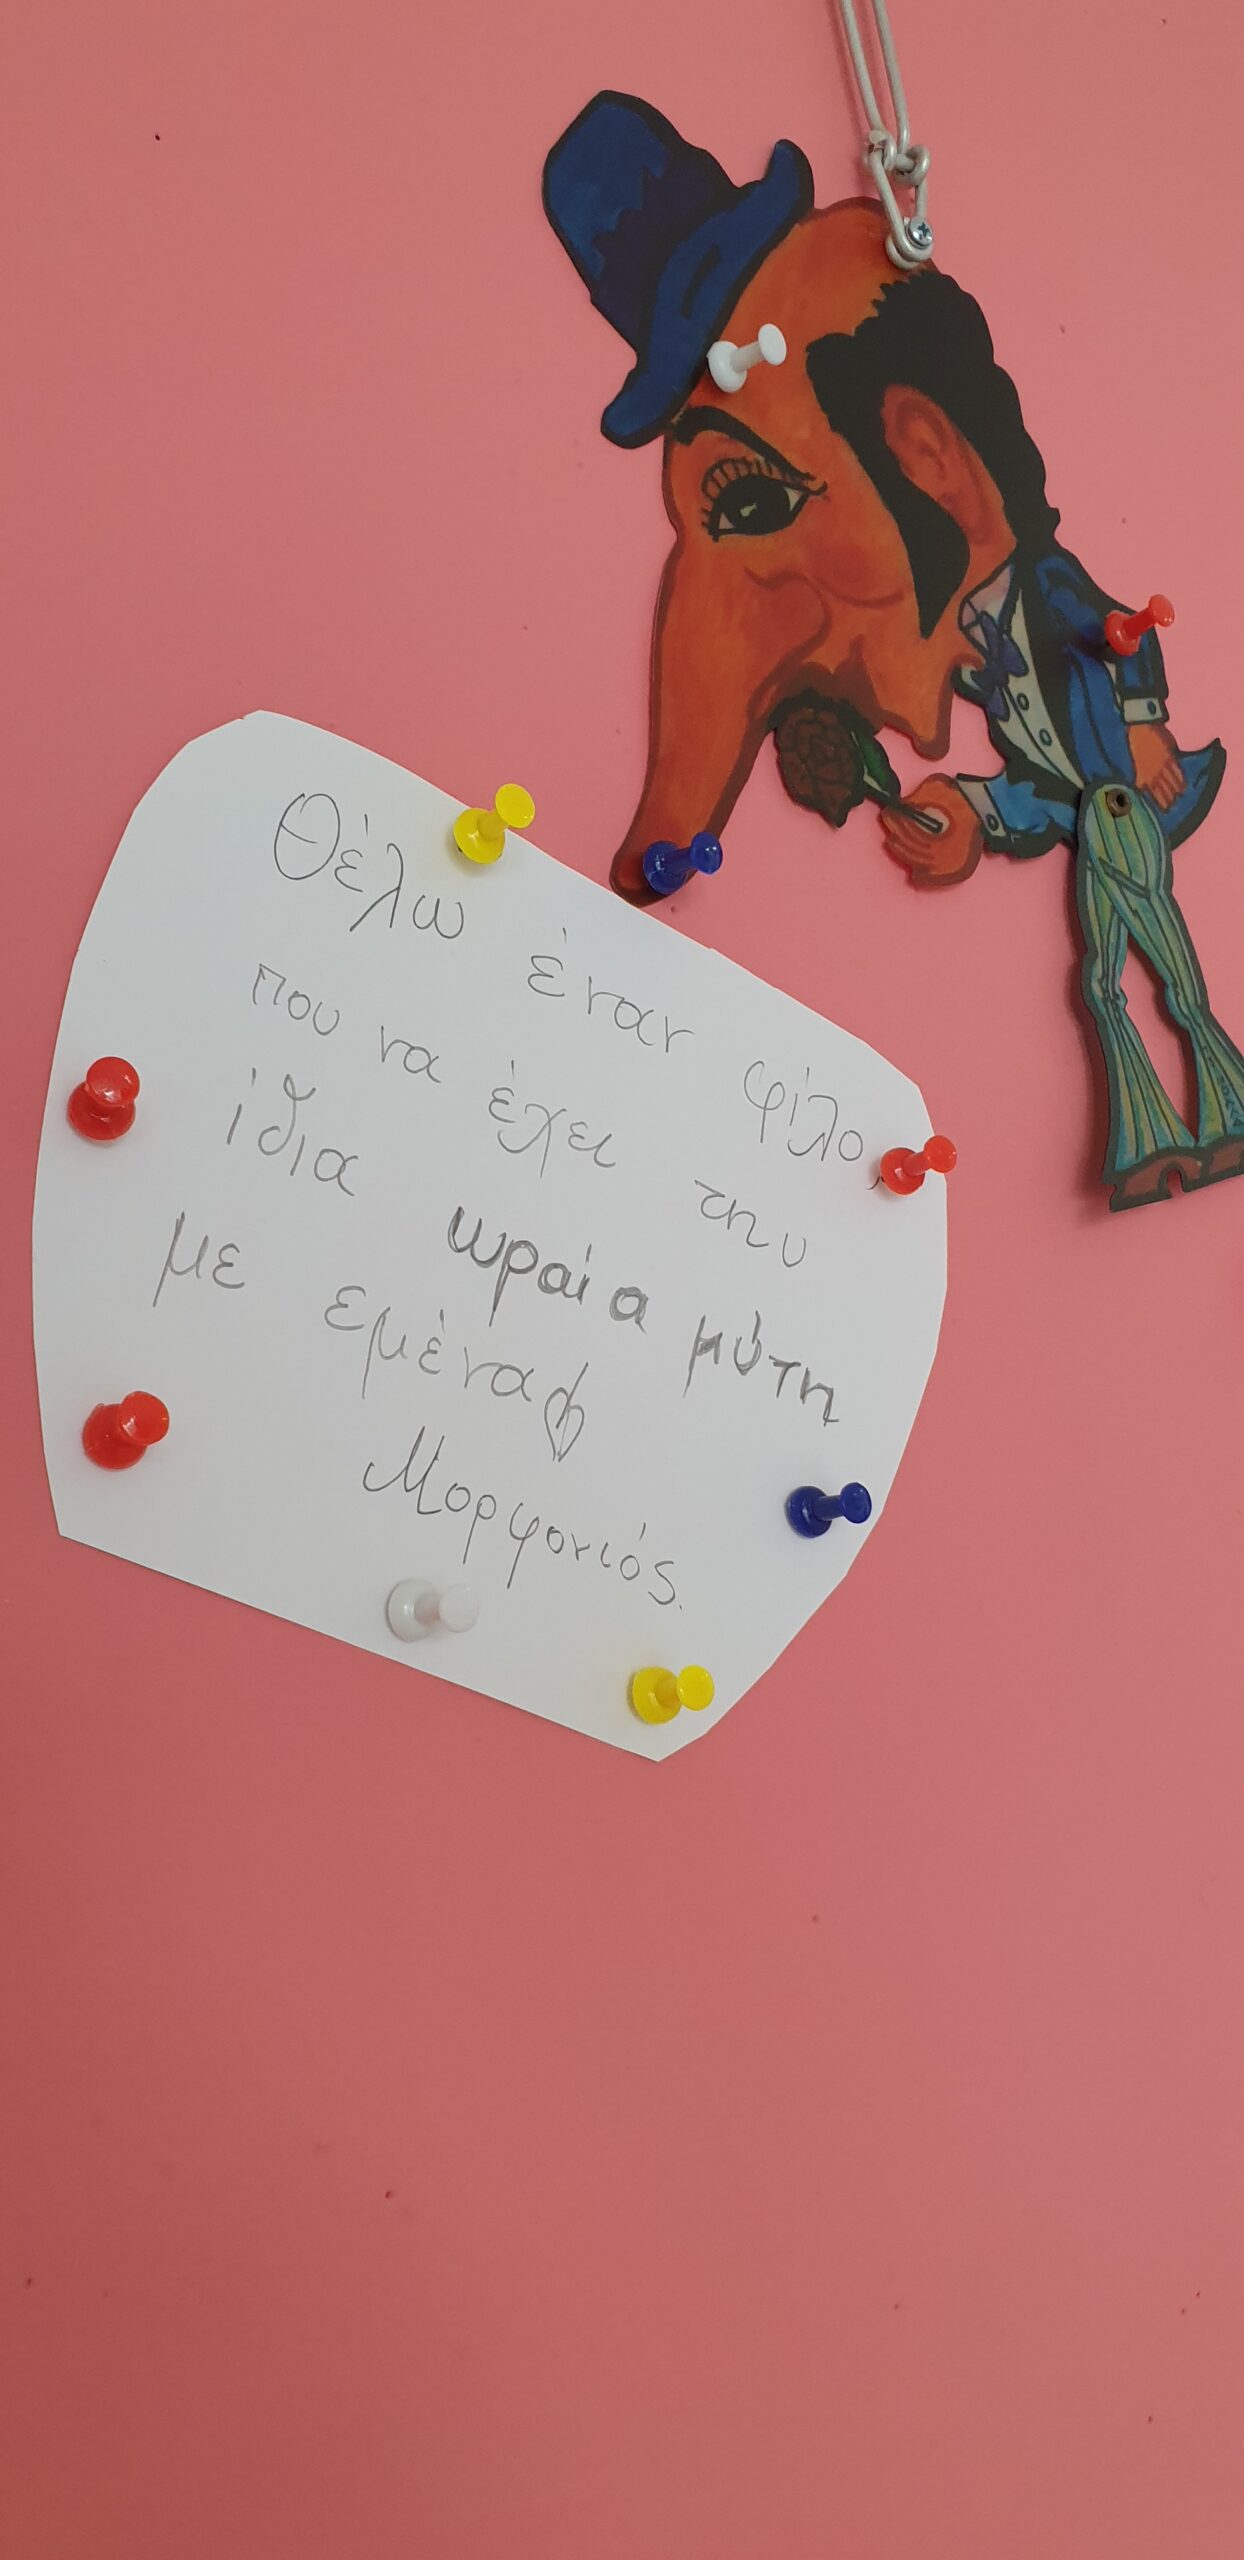 Θέλω έναν φίλο,
που να έχει την
ίδια ωραία μύτη
με εμένα
Μορφονιός.